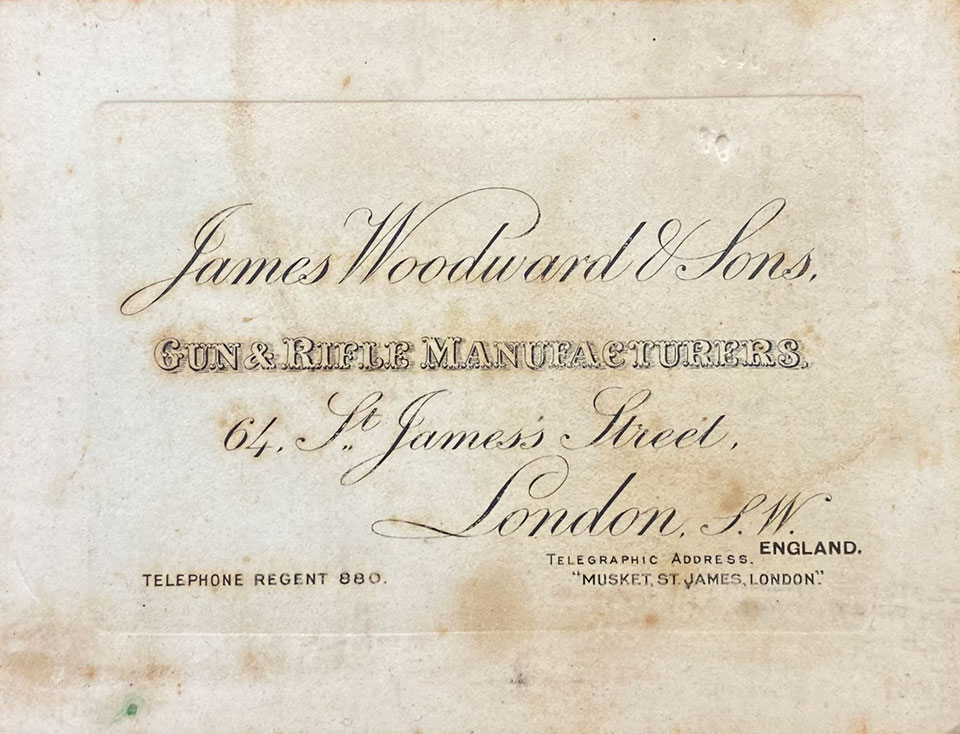 James Woodward & Sons.
GUN & RIFLE MANUFACTURERS.
64, St. James's Street,
London, S.W.
ENGLAND.
TELEPHONE REGENT 880.
TELEGRAPHIC ADDRESS.
"MUSKET, ST. JAMES, LONDON."